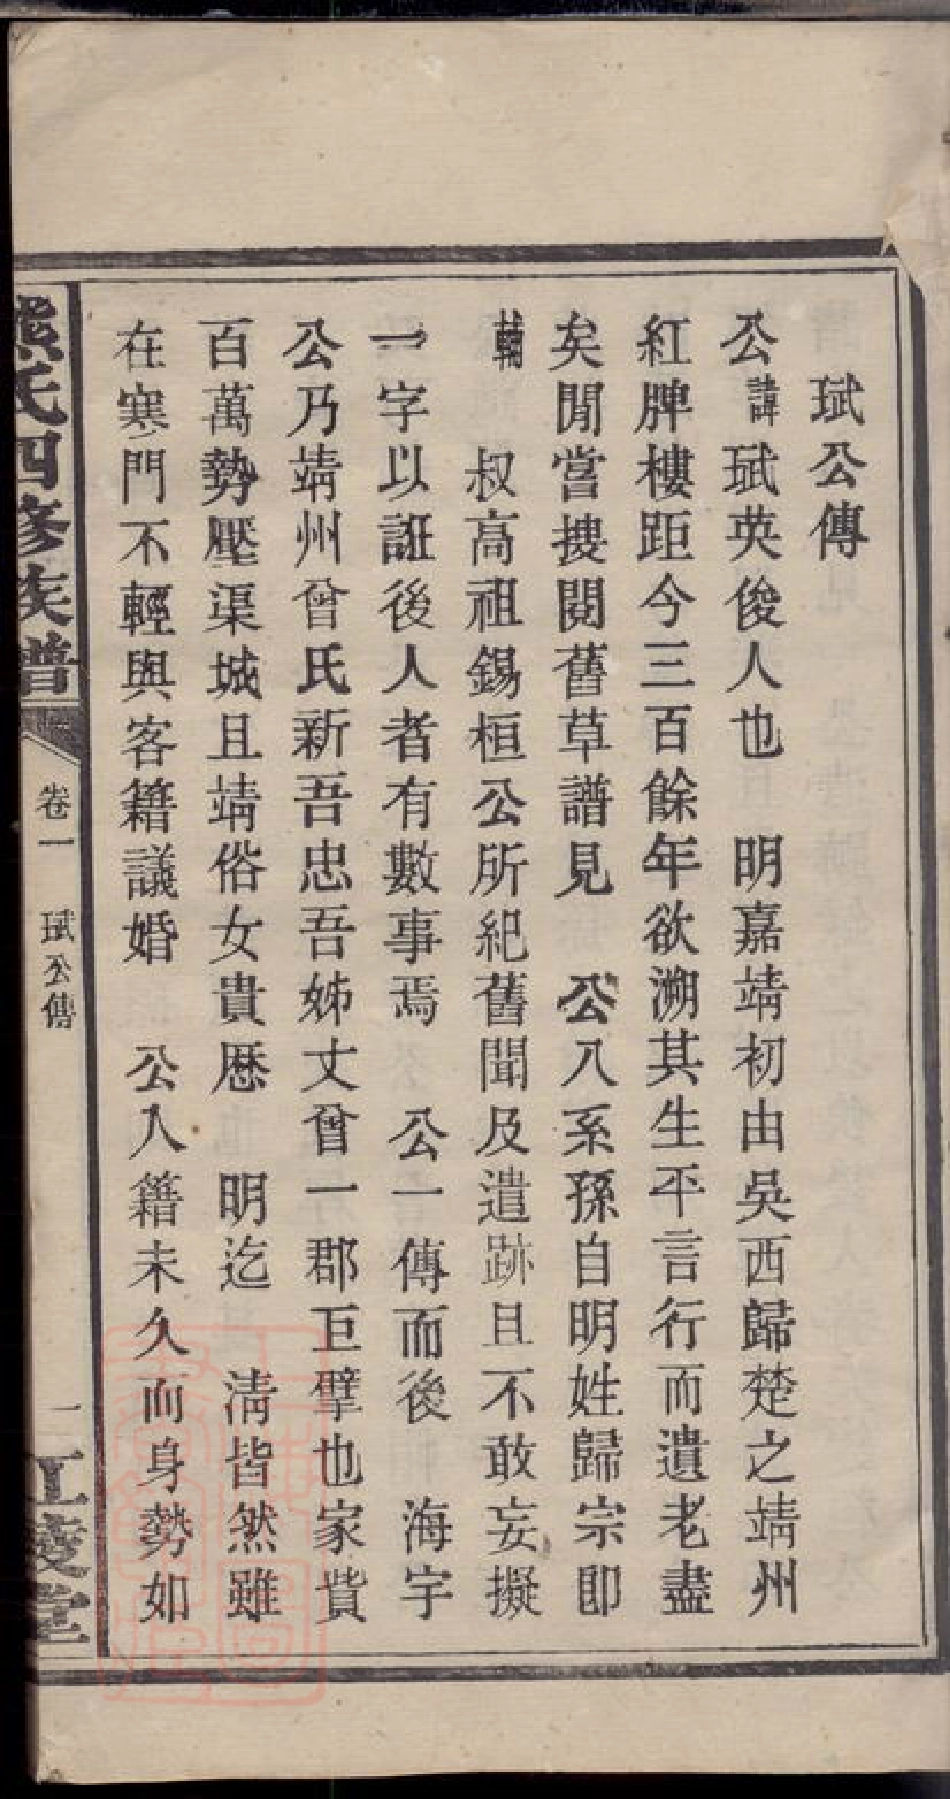 珷公傳
公諱珷英俊人也　明嘉靖初由吳西歸楚之靖州
紅牌樓距今三百餘年欲溯其生平言行而遺老盡
矣閒嘗摟閱舊草譜見　公八系孫自明姓歸宗即
輔　叔高祖錫桓公所紀舊聞及遺跡且不敢妄擬
一字以誑後人者有數事焉　公一傳而後　海宇
公乃靖州曾氏新吾忠吾姊丈曾一郡巨擘也家貲
百萬勢壓渠城且靖俗女貴歷　明迄　淸皆然雖
在寒門不輕與客籍議婚　公入籍未久而身勢如
熊氏四修族譜
卷一　珷公傳
一
江陵堂